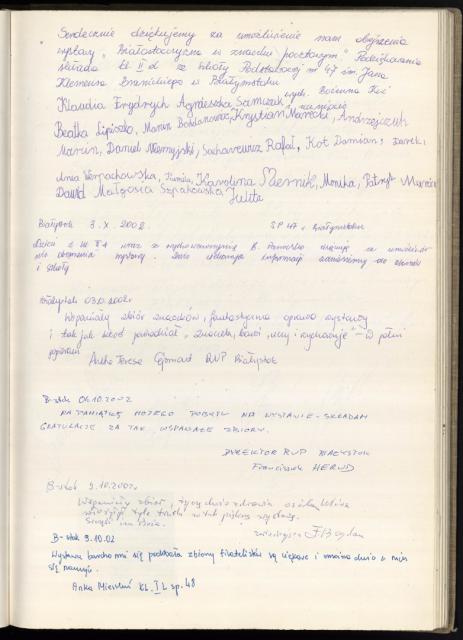 Serdecznie dziękujemy za umożliwienie nam obejrzenia
wystawy "Białostocczyzna w znaczku pocztowym". Podziękowania
składa kl. II d ze Szkoły Podstawowej nr 47 im. Jana
Klemensa Branickiego w Białymstoku
wych. Bożena Kuć
Klaudia Frydrych Agnieszka Samczuk
Beatka Lipiszko, Marun Bogdanowicz, Krystian Marecki, Andrzejczuk
Marcin, Daniel Niemyjski, Sacharewicz Rafał, Kot Damian, Darek,
Ania Worpachowska, Kamila, Karolina Miernik, Monika, Patryk, Marcin
Dawid Małgosia Szpakowska, Julita
Białystok 3.X.2002 SP 47 w Białymstoku
Dzieci z wraz z wychowawczynią B. za
wystawy. Dużo informacji do domów
i szkoły
Białystok 03.10.2002r
Wspaniały zbiór znaczków, fantastyczna oprawa wystawy
i tak jak ktoś powiedział "znaczek bawi, uczy i wychowuje" - W pełni
popieram
Anna Teresa RUP Białystok
B-stok 04.10.2002
NA PAMIĄTKĘ MOJEGO POBYTU NA WYSTAWIE - SKŁADAM
GRATULACJE ZA TAK WSPANIAŁE ZBIORY.
DYREKTOR RUP BIAŁYSTOK
Franciszek HERUD
B-stok 9.10.2002r.
Wspaniały zbiór, życzę dużo zdrowia osobom które
włożyły tyle trudu w tak piękną wystawę.
F. Bogdan
B-stok 9.10.02
Wystawa bardzo mi się podobała zbiory filatelistyki są ciekawe i można dużo z nich
się nauczyć.
Anka kl. I L sp. 48